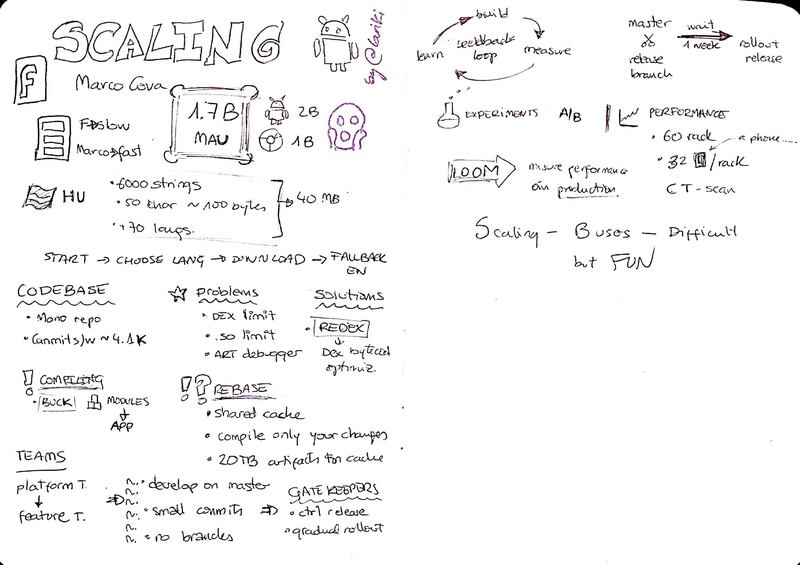 SCALING
by @lariki
F
Marco Cova
1.7B
MAU
2B
1B
F → slow
Marco → fast
HU
• 6000 strings
• 50 char ~ 100 bytes
• +70 langs.
→ 40 MB
START → CHOOSE LANG → DOWNLOAD → FALLBACK
EN
CODEBASE
• Mono repo
• Commits/w ~ 4.1K
Problems
• DEX limit
• .so limit
• ART debugger
SOLUTIONS
• REDEX
↓
Dex bytecod
optimiz.
! COMPILING
• BUCK
MODULES
↓
APP
!? REBASE
• shared cache
• compile only your changes
• 20TB artifacts for cache
TEAMS
platform T.
↓
feature T.
• develop on master
• small commits
• no branches
GATEKEEPERS
• ctrl release
• gradual rollout
build
learn
feedback
loop
measure
master
release
branch
wait
1 week
rollout
release
EXPERIMENTS A/B
PERFORMANCE
• 60 rack
• 32 /rack
a phone....
CT-scan
LOOM
misure performance
on production
Scaling – Buses – Difficult
but FUN